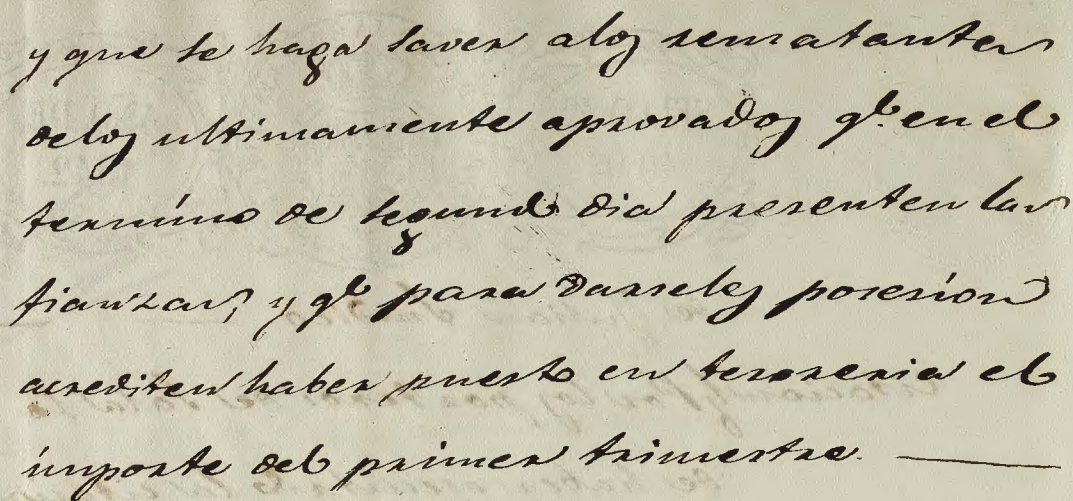 y que se haga saver alos rematantes
delos ultimamente aprovados qe. en el
termino de segundo dia presenten las
fianzas, y qe para darseles posesion
acrediten haber puesto en tesoreria el
importe del primer trimestre.